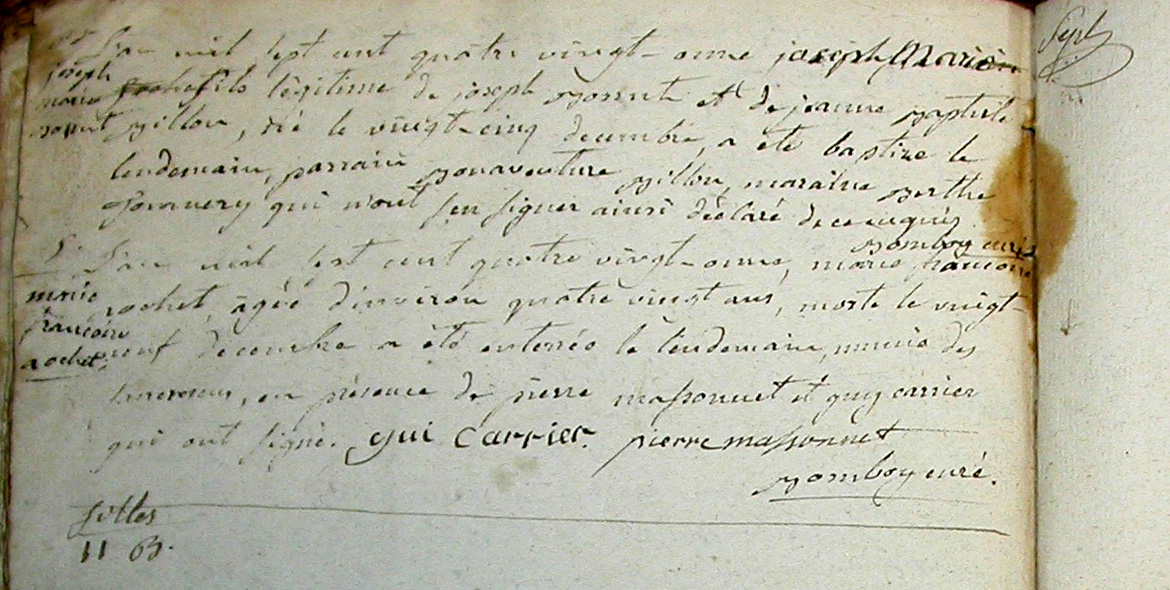 L'an mil sept cent quatre vingt-onze joseph Marie
joseph
marie
fils légitime de joseph et de jeanne baptiste
millon, né le vingt-cinq decembre, a été baptisé le
lendemain, parrain bonaventure millon, maraine berthe
qui n'ont sçu signer ainsi déclaré de ce enquis
bomboy curé
L'an mil sept cent quatre vingt-onze, marie francoise
marie
francoise
rochet.
rochet, agée d'environ quatre vingt ans, morte le vingt-
neuf decembre a été enterrée le lendemain, munie des
sacremens, en présence de pierre massonnet et guy carrier
qui ont signé. gui Carrier. pierre massonnet
bomboy curé.
11 63.
Sept